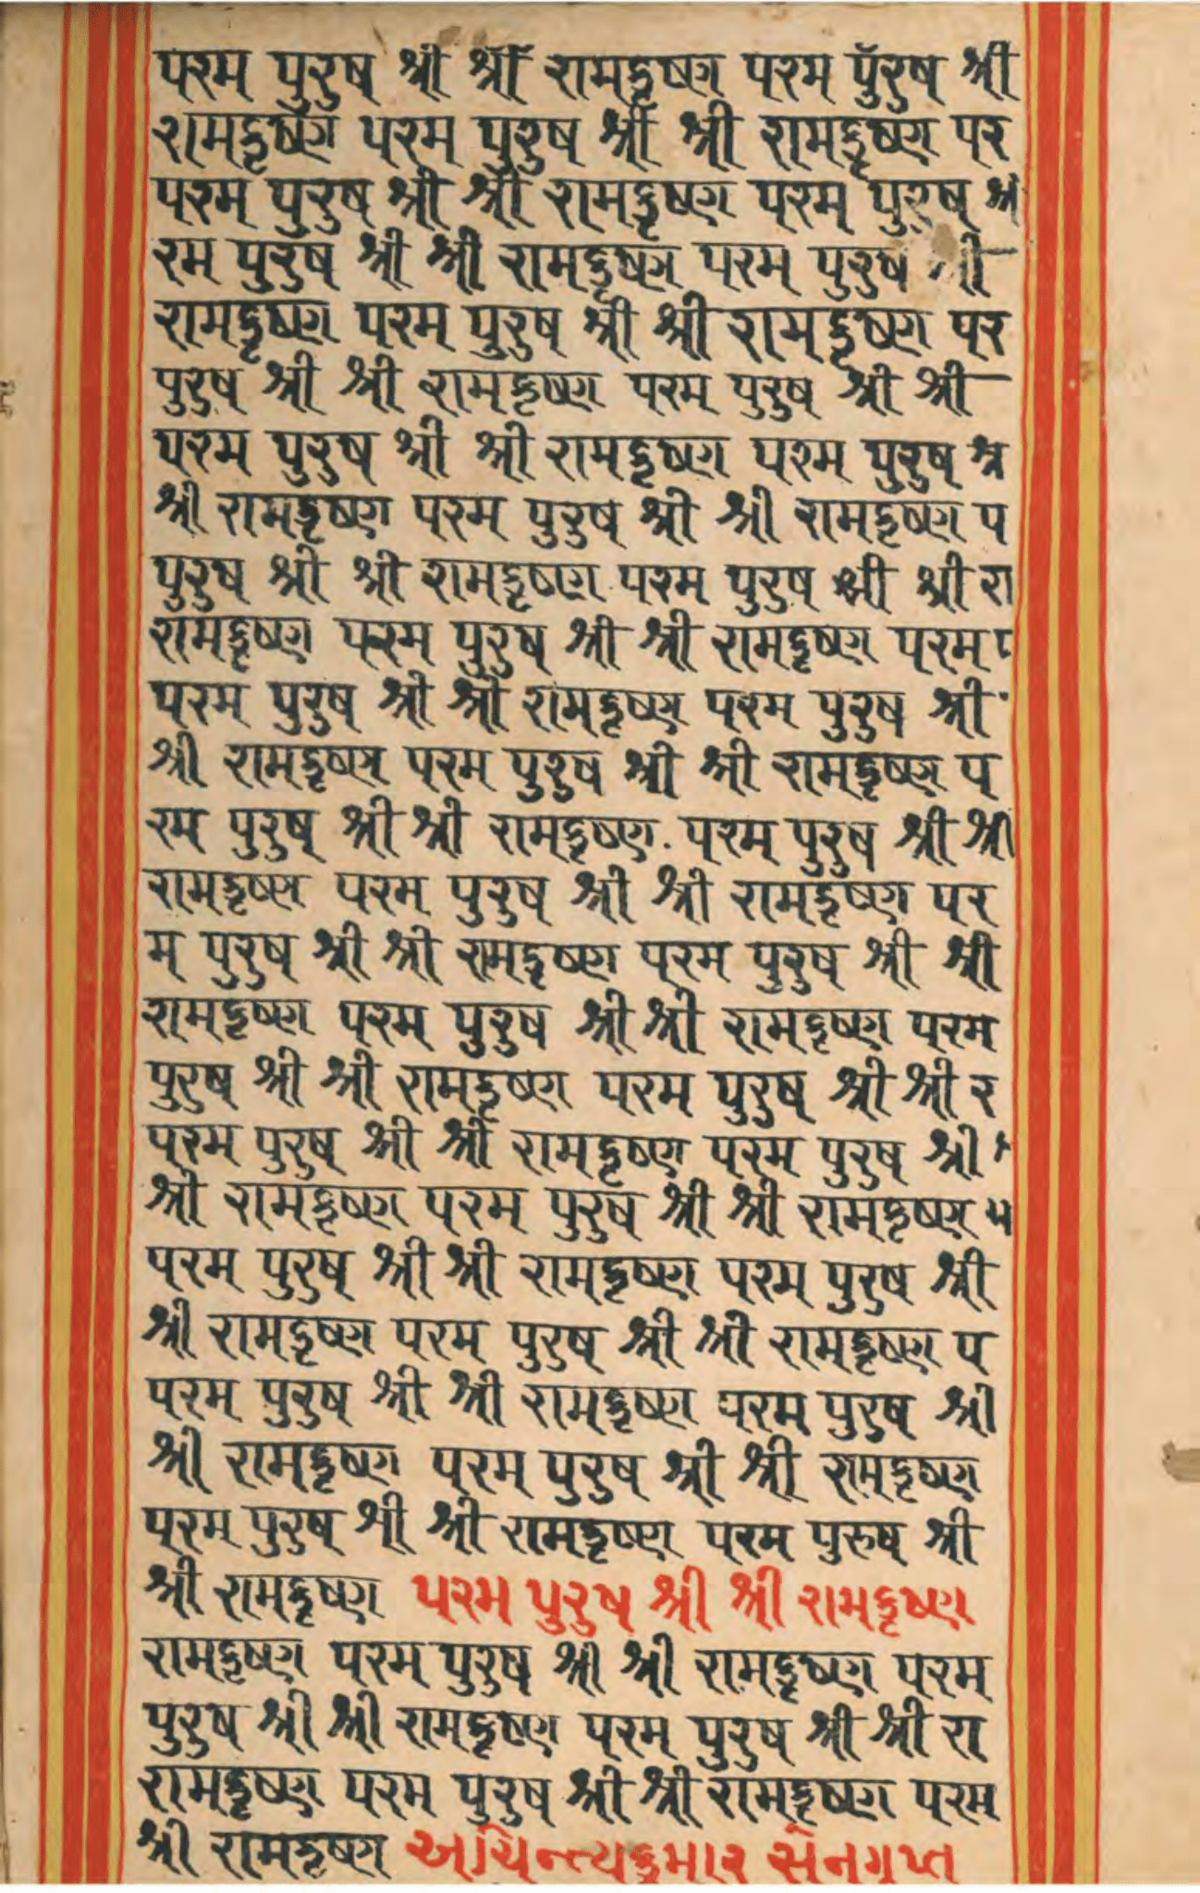 परम पुरुष श्री श्री रामकृष्ण परम पुरुष श्री
रामकृष्ण परम पुरुष श्री श्री रामकृष्ण पर
परम पुरुष श्री श्री रामकृष्ण परम पुरुष
रम पुरुष श्री श्री रामकृष्ण परम पुरुष श्री
रामकृष्ण परम पुरुष श्री श्री रामकृष्ण पर
पुरुष श्री श्री रामकृष्ण परम पुरुष श्री श्री
परम पुरुष श्री श्री रामकृष्ण परम पुरुष श्र
श्री रामकृष्ण परम पुरुष श्री श्री रामकृष्ण प
पुरुष श्री श्री रामकृष्ण परम पुरुष श्री श्री रा
रामकृष्ण परम पुरुष श्री श्री रामकृष्ण परम
परम पुरुष श्री श्री रामकृष्ण परम पुरुष श्री
श्री रामकृष्ण परम पुरुष श्री श्री रामकृष्ण प
रम पुरुष श्री श्री रामकृष्ण. परम पुरुष श्री श्री
रामकृष्ण परम पुरुष श्री श्री रामकृष्ण पर
म पुरुष श्री श्री रामकृष्ण परम पुरुष श्री श्री
रामकृष्ण परम पुरुष श्री श्री रामकृष्ण परम
पुरुष श्री श्री रामकृष्ण परम पुरुष श्री श्री र
परम पुरुष श्री श्री रामकृष्ण परम पुरुष श्री
श्री रामकृष्ण परम पुरुष श्री श्री रामकृष्ण प
परम पुरुष श्री श्री रामकृष्ण परम पुरुष श्री
श्री रामकृष्ण परम पुरुष श्री श्री रामकृष्ण प
परम पुरुष श्री श्री रामकृष्ण परम पुरुष श्री
श्री रामकृष्ण परम पुरुष श्री श्री रामकृष्ण
परम पुरुष श्री श्री रामकृष्ण परम पुरुष श्री
श्री रामकृष्ण परम पुरुष श्री श्री रामकृष्ण
रामकृष्ण परम पुरुष श्री श्री रामकृष्ण परम
पुरुष श्री श्री रामकृष्ण परम पुरुष श्री श्री रा
रामकृष्ण परम पुरुष श्री श्री रामकृष्ण परम
श्री रामकृष्ण અચિન્ત્યકુમાર સેનગુપ્ત